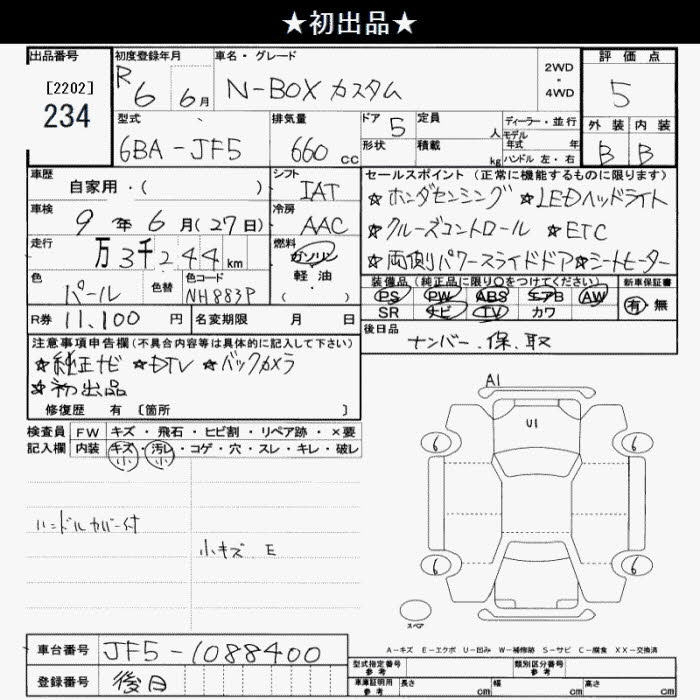 ★初出品★
出品番号 初度登録年月 車名・グレード 評価点
[2202] R6 6月 N-BOX カスタム 2WD・4WD 5
234 型式 排気量 ドア 定員 ディーラー・並行 外装 内装
6BA-JF5 660cc 5 人 モデル年式 年 B B
形状 積載 kg ハンドル 左・右
車歴 自家用・( ) シフト IAT セールスポイント (正常に機能するものに限ります)
車検 9年6月(27日) 冷房 AAC ☆ホンダセンシング ☆LEDヘッドライト
走行 万3千244km 燃料 ガソリン ☆クルーズコントロール ☆ETC
色 パール 色替 色コード NH883P 軽・油 ( ) ☆両側パワースライドドア ☆シートヒーター
装備品 (純正品に限り○をつけてください) 新車保証書
PS PW ABS エアB AW 有 無
SR ナビ TV カワ
R券 11,100円 名変期限 月 日 後日品 ナンバー.保.取
注意事項申告欄 (不具合内容等は具体的に記入して下さい)
☆純正ナビ ☆DTV ☆バックカメラ
☆初出品
修復歴 有 [箇所 ]
検査員 FW キズ・飛石・ヒビ割・リペア跡・×要
記入欄 内装 キズ・汚レ・コゲ・穴・スレ・キレ・破レ
小 小
ハンドルカバー付
小キズ E
A1
U1
6 6
6 6
スペア
A-キズ E-エクボ U-凹み W-補修跡 S-サビ C-腐食 XX-交換済
車台番号 JF5-1088400
登録番号 後日
型式指定番号 参考 類別区分番号 参考
車庫証明用 参考 長さ cm 幅 cm 高さ cm